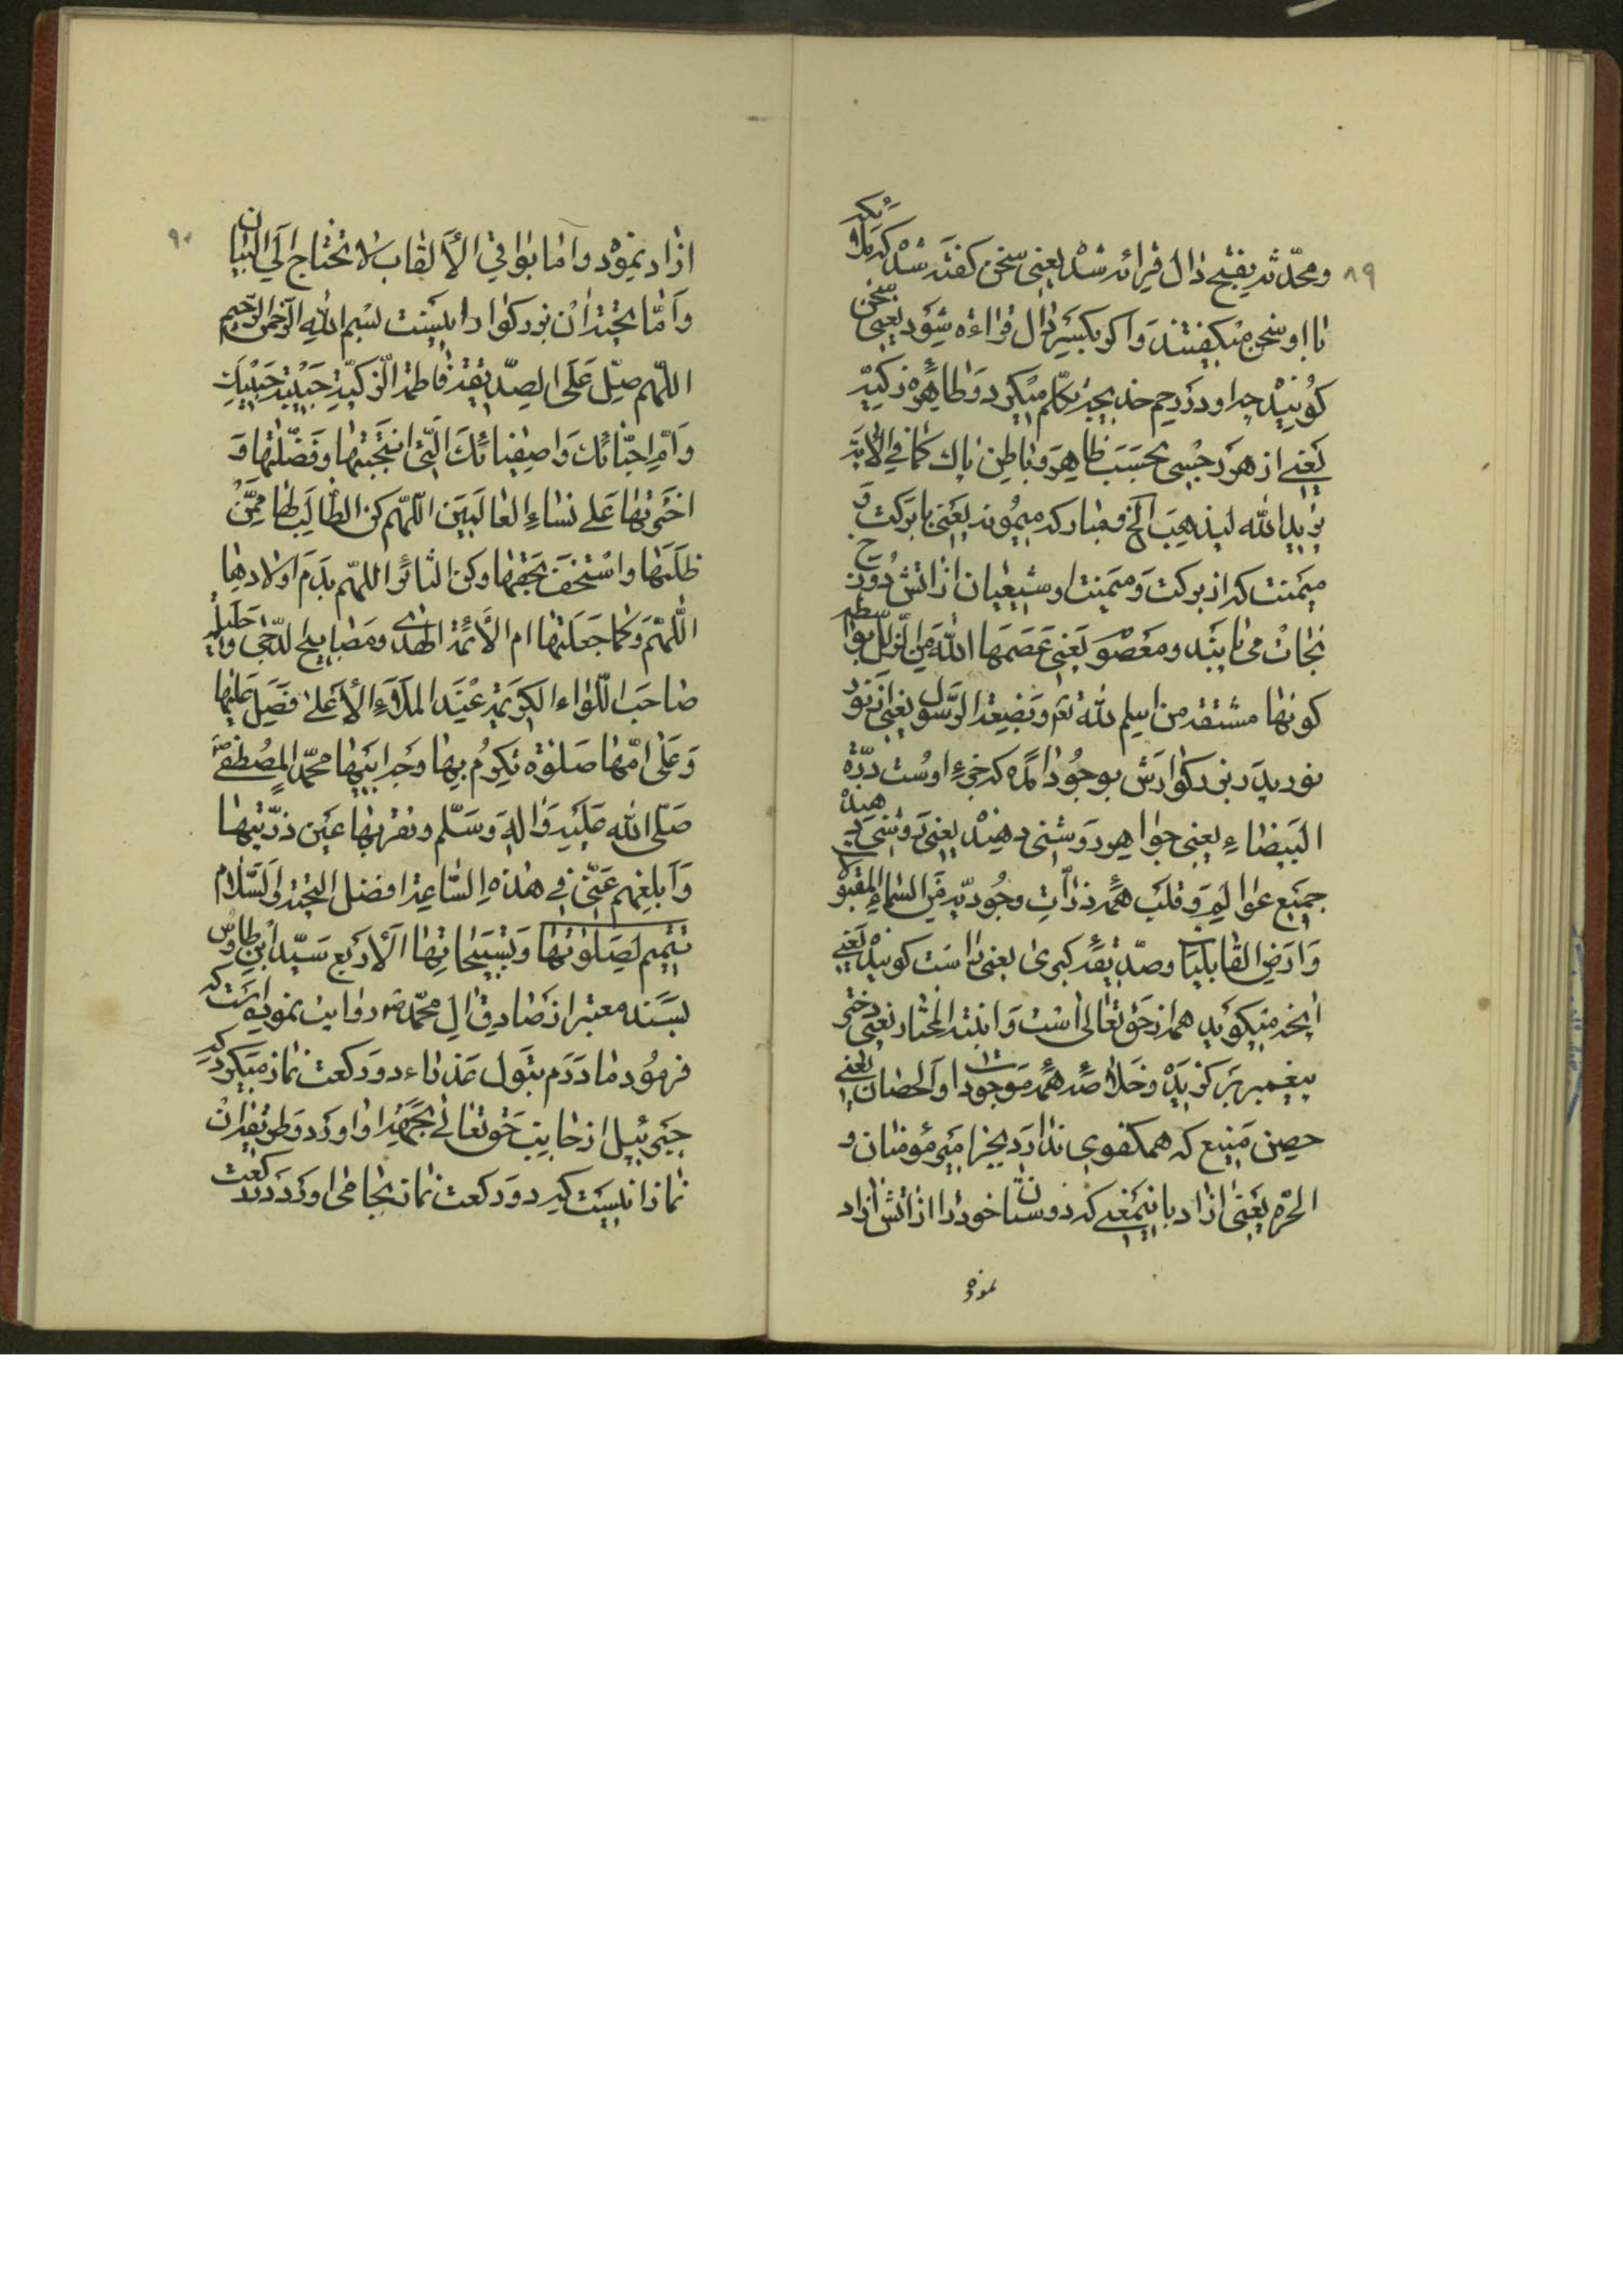 ٨٩
ومحدّثه بفتح دال قرائه شد يعنى سخن كفته شد كه ملائكه
با او سخن ميكفتند و اكر بكسر دال قراءه شود يعنى سخن
كوينده چه او در رحم خديجه تكلّم ميكرد و طاهره زكيّه
يعنى از هر رجسى بحسب ظاهر و باطن پاك كما فى الآية
يريد الله ليذهب الخ و مباركه ميمونه يعنى با بركت و
ميمنت كه از بركت و ميمنت او شيعيان از آتش دوزخ
نجات مى يابند ومعصومه يعنى عصمها الله من الزلل بواسطه
كونها مشتقه من اسم الله تعم وبضعة الرسول يعنى از نور
نوريه بزركوارش بوجود آمده كه جزء اوست درّة
البيضاء يعنى جواهر روشنى دهنده يعنى روشنى دهنده
جميع عوالم و قلب همه ذرّات وجوديّه من السماء المقبولا
و ارض القابليا و صدّيقه كبرى يعنى راست كوينده يعنى
آنچه ميكويد همه از حق تعالى است و ابنة المختار يعنى دختر
پيغمبر بركزيده و خلاصه همه موجودات او الحصان يعنى
حصن منيع كه همكفوى ندارد بجز امير مؤمنان و
الحرّه يعنى آزاد باينمعنى كه دوستان خود را از آتش آزاد
نموده
٩٠
آزاد نموده و اما بواقي الألقاب لا تحتاج الى البيان
و امّا تحيّة آن بزركوار اينست بسم الله الرّحمن الرّحيم
اللهم صلّ على الصدّيقة فاطمة الزكيّة حبيبة حبيبك
وامّ احبّائك واصفيائك الّتى انتجبتها وفضّلتها و
اخترتها على نساء العالمين اللّهم كن الطّالب لها ممّن
ظلمها واستخفّ بحقّها وكن الثائر اللهم بدم اولادها
اللّهم وكما جعلتها ام الأئمّة الهدى ومصابيح الدّجى وحليلة
صاحب اللّواء الكريمة عند الملاء الأعلى فصلّ عليها
وعلى امّها صلوة تكرم بها وجه ابيها محمّد المصطفى
صلّى الله عليه واله وسلّم وتقرّ بها عين ذرّيتها
وابلغهم عنّى في هذه السّاعة افضل التحيّة والسّلام
تتميم لصلوتها وتسبيحاتها الأربع سيّد ابن طاوس
بسند معتبر از صادق ال محمّد ص روايت نموده است كه
فرمود مادرم بتول عذراء دو ركعت نماز ميكرد كه
جبرئيل از جانب حق تعالى بجهة او آورد و طريقه آن
نماز اينست كه دو ركعت نماز بجا مى آورد در ركعت